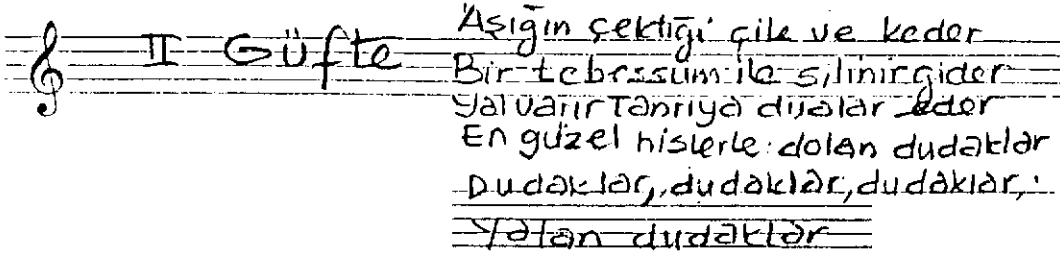 II Güfte
Aşığın çektiği çile ve keder
Bir tebessüm ile silinir gider
Yalvarır Tanrıya dualar eder
En güzel hislerle dolan dudaklar
Dudaklar, dudaklar, dudaklar,
Yalan dudaklar